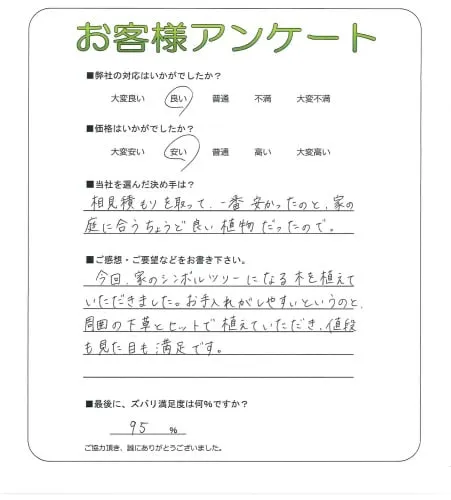 お客様アンケート
■弊社の対応はいかがでしたか？
大変良い 良い 普通 不満 大変不満
■価格はいかがでしたか？
大変安い 安い 普通 高い 大変高い
■当社を選んだ決め手は？
相見積もりを取って、一番安かったのと、家の
庭に合うちょうど良い植物だったので。
■ご感想・ご要望などをお書き下さい。
今回、家のシンボルツリーになる木を植えて
いただきました。お手入れがしやすいというのと、
周囲の下草とセットで植えていただき、値段
も見た目も満足です。
■最後に、ズバリ満足度は何％ですか？
95 %
ご協力頂き、誠にありがとうございました。